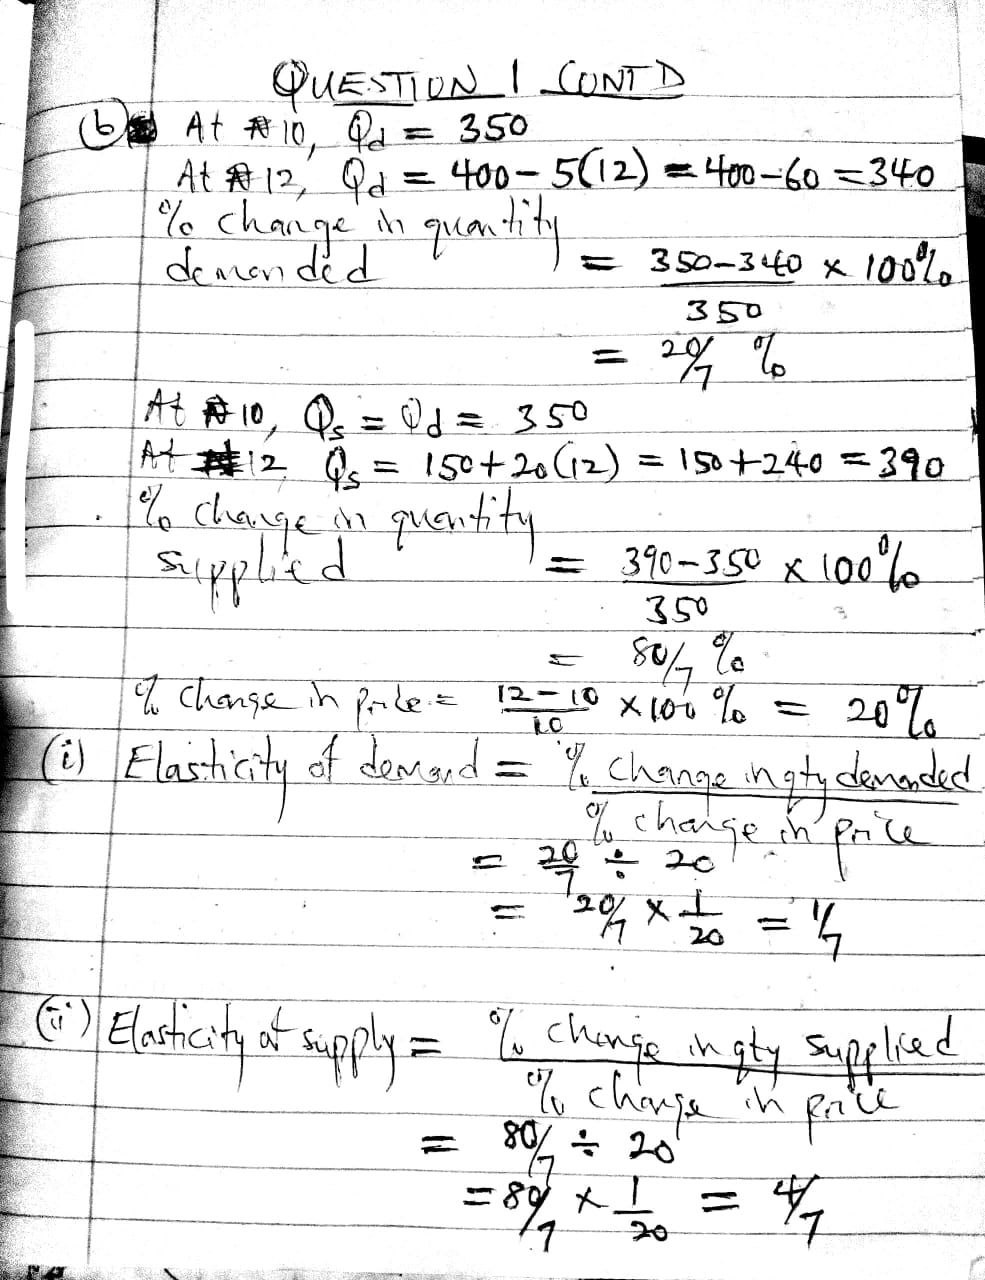 QUESTION 1 CONTD
(b) At ₦10, Qd = 350
At ₦12, Qd = 400 - 5(12) = 400 - 60 = 340
% change in quantity
demanded = 350-340 x 100%
350
= 20/7 %
At ₦10, Qs = Qd = 350
At ₦12 Qs = 150 + 20(12) = 150 + 240 = 390
% change in quantity
supplied = 390-350 x 100%
350
= 80/7 %
% change in price = 12-10 x 100 % = 20%
10
(i) Elasticity of demand = % change in qty demanded
% change in price
= 20/7 ÷ 20
= 20/7 x 1/20 = 1/7
(ii) Elasticity of supply = % change in qty supplied
% change in price
= 80/7 ÷ 20
= 80/7 x 1/20 = 4/7